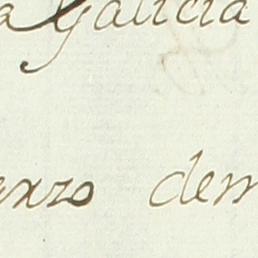 a Galicia
arzo dem